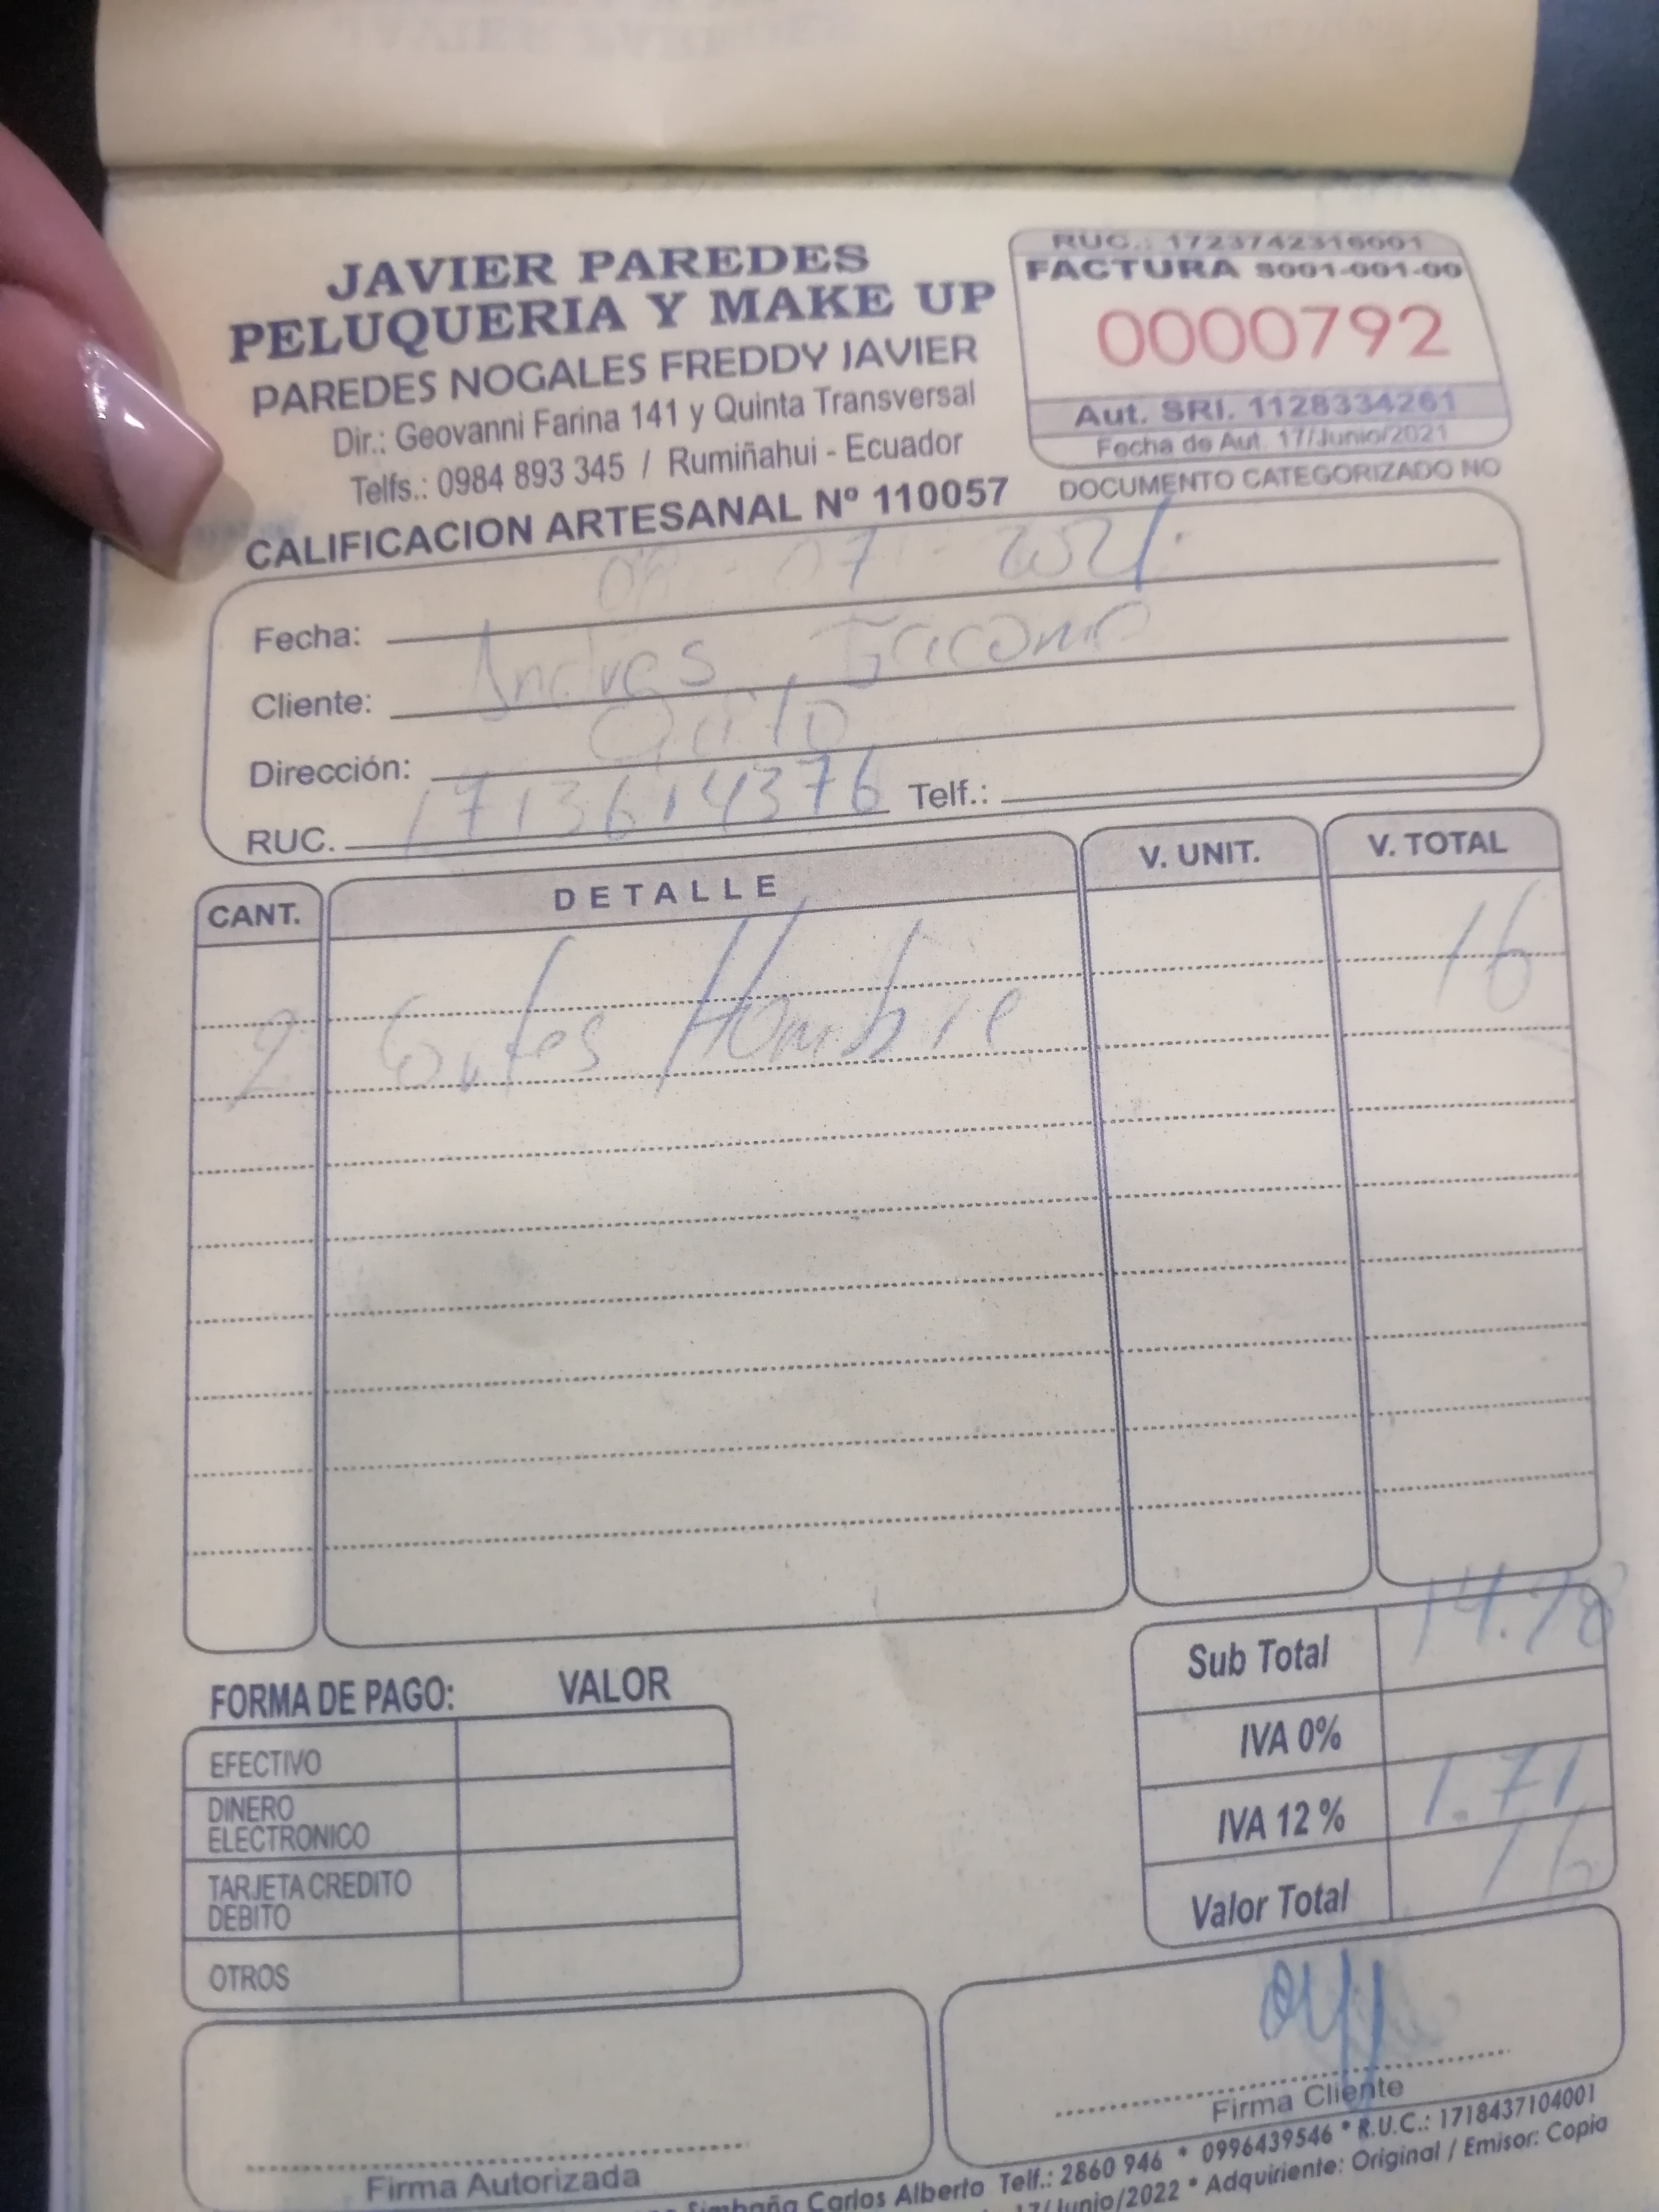 JAVIER PAREDES
PELUQUERIA Y MAKE UP
PAREDES NOGALES FREDDY JAVIER
Dir.: Geovanni Farina 141 y Quinta Transversal
Telfs.: 0984 893 345 / Rumiñahui - Ecuador
CALIFICACION ARTESANAL Nº 110057
RUC.: 1723742316001
FACTURA S001-001-00
0000792
Aut. SRI. 1128334261
Fecha de Aut. 17/Junio/2021
DOCUMENTO CATEGORIZADO NO
Fecha: 07 - 2021
Cliente: Andres
Dirección: Quito
RUC. 1713614376 Telf.:
CANT. DETALLE V. UNIT. V. TOTAL
2 Cortes Hombre 16
Sub Total 14.28
IVA 0%
IVA 12 % 1.71
Valor Total 16
FORMA DE PAGO: VALOR
EFECTIVO
DINERO
ELECTRONICO
TARJETA CREDITO
DEBITO
OTROS
Firma Autorizada
Firma Cliente
Simbaña Carlos Alberto Telf.: 2860 946 * 0996439546 * R.U.C.: 1718437104001
17/Junio/2022 * Adquiriente: Original / Emisor: Copia